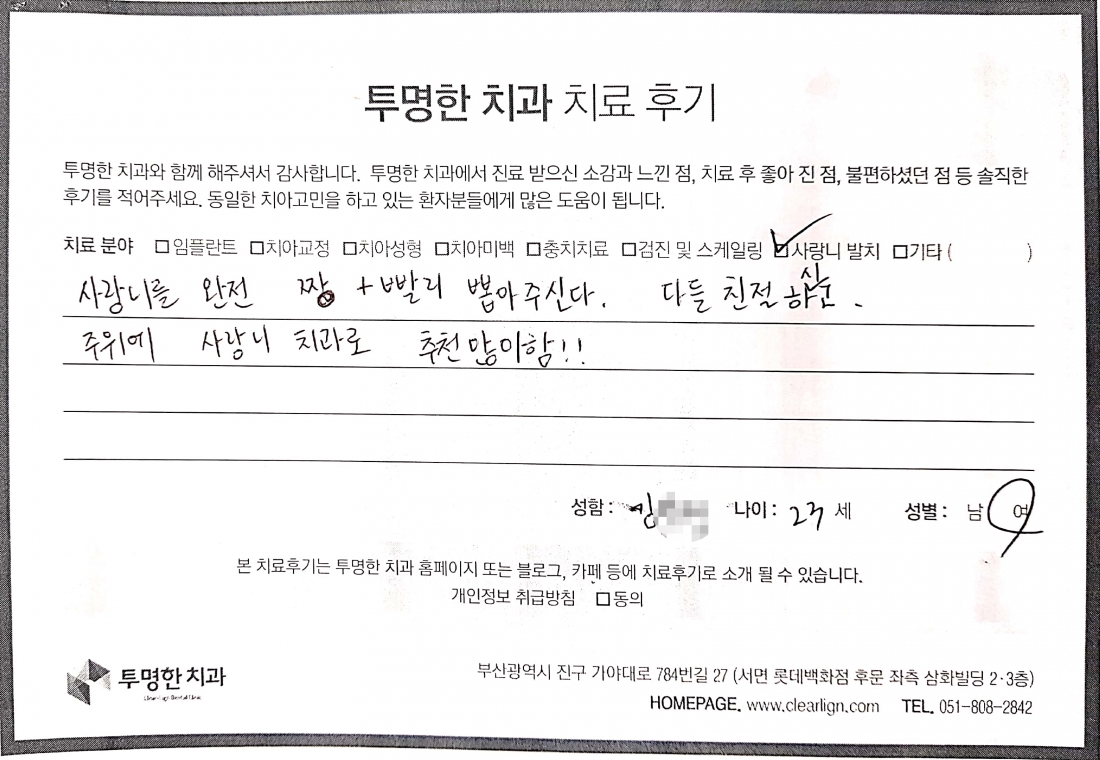 투명한 치과 치료 후기
투명한 치과와 함께 해주셔서 감사합니다. 투명한 치과에서 진료 받으신 소감과 느낀 점, 치료 후 좋아 진 점, 불편하셨던 점 등 솔직한
후기를 적어주세요. 동일한 치아고민을 하고 있는 환자분들에게 많은 도움이 됩니다.
치료 분야 □임플란트 □치아교정 □치아성형 □치아미백 □충치치료 □검진 및 스케일링 ☑사랑니 발치 □기타 ( )
사랑니를 완전 짱 +빨리 뽑아주신다. 다들 친절 하심고.
주위에 사랑니 치과로 추천 많이함!!
성함 : 나이 : 23 세 성별 : 남 여
본 치료후기는 투명한 치과 홈페이지 또는 블로그, 카페 등에 치료후기로 소개 될 수 있습니다.
개인정보 취급방침 □동의
투명한 치과
부산광역시 진구 가야대로 784번길 27 (서면 롯데백화점 후문 좌측 삼화빌딩 2·3층)
HOMEPAGE. www.clearlign.com TEL. 051-808-2842